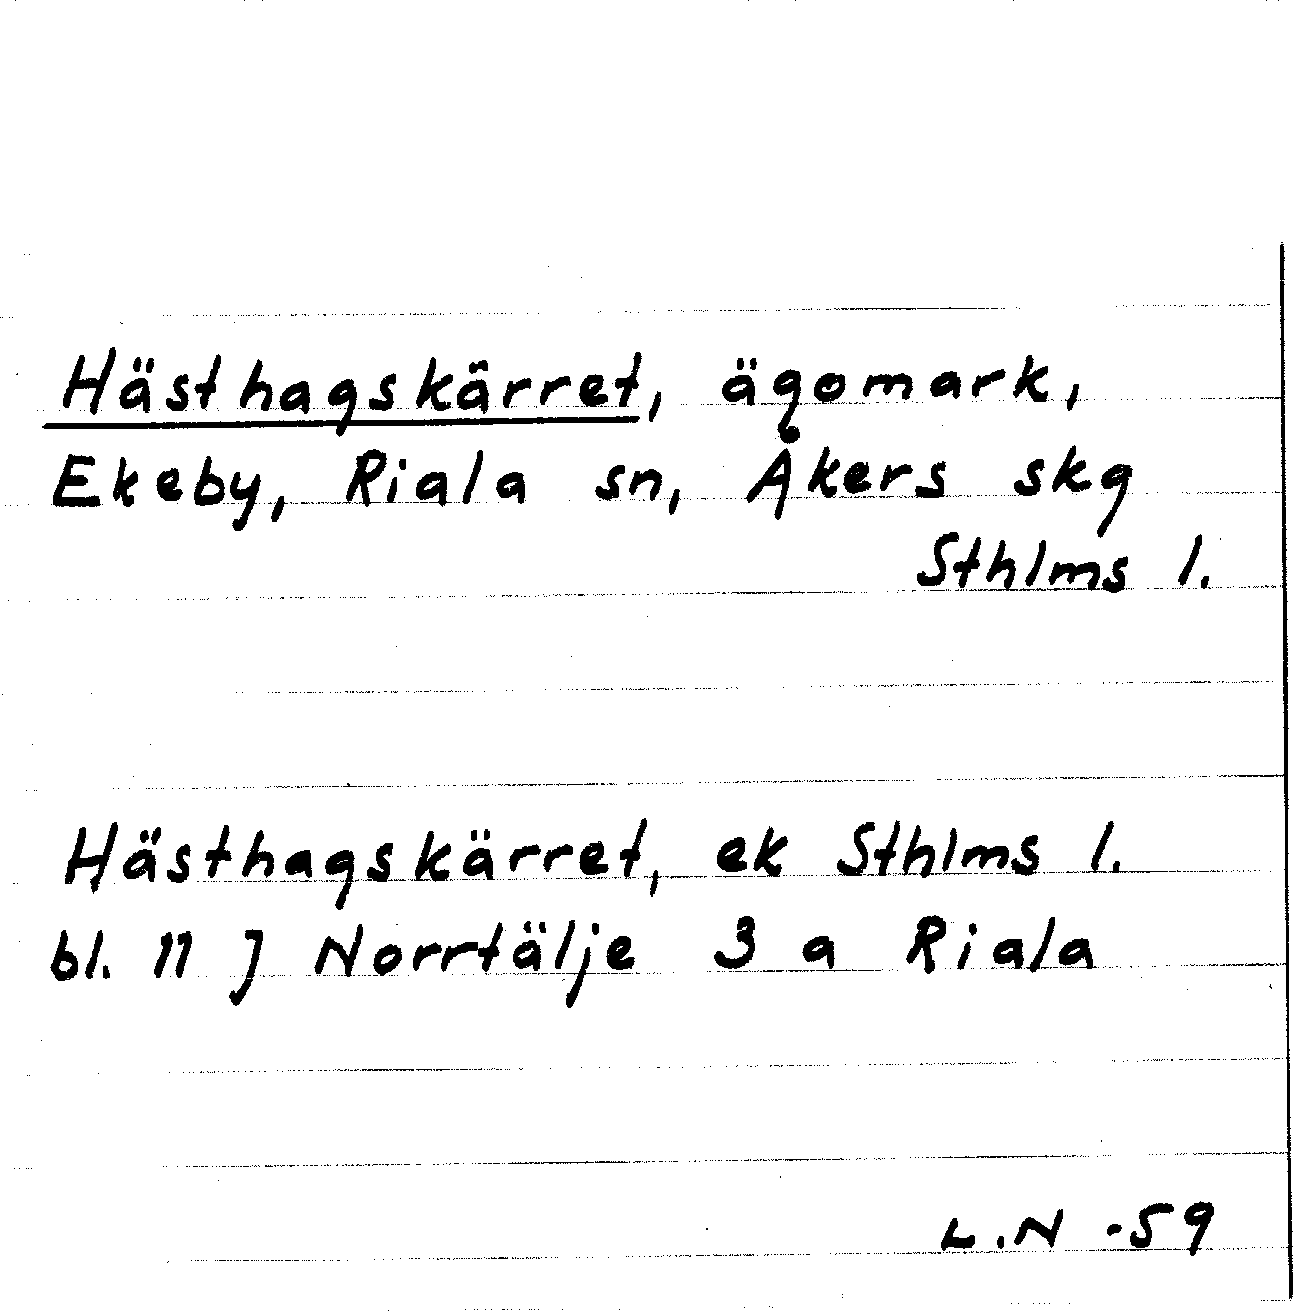 Hästhagskärret, ägomark,
Ekeby, Riala sn, Åkers skg
Sthlms l.
Hästhagskärret, ek Sthlms l.
bl. 11 J Norrtälje 3 a Riala
L.N -59